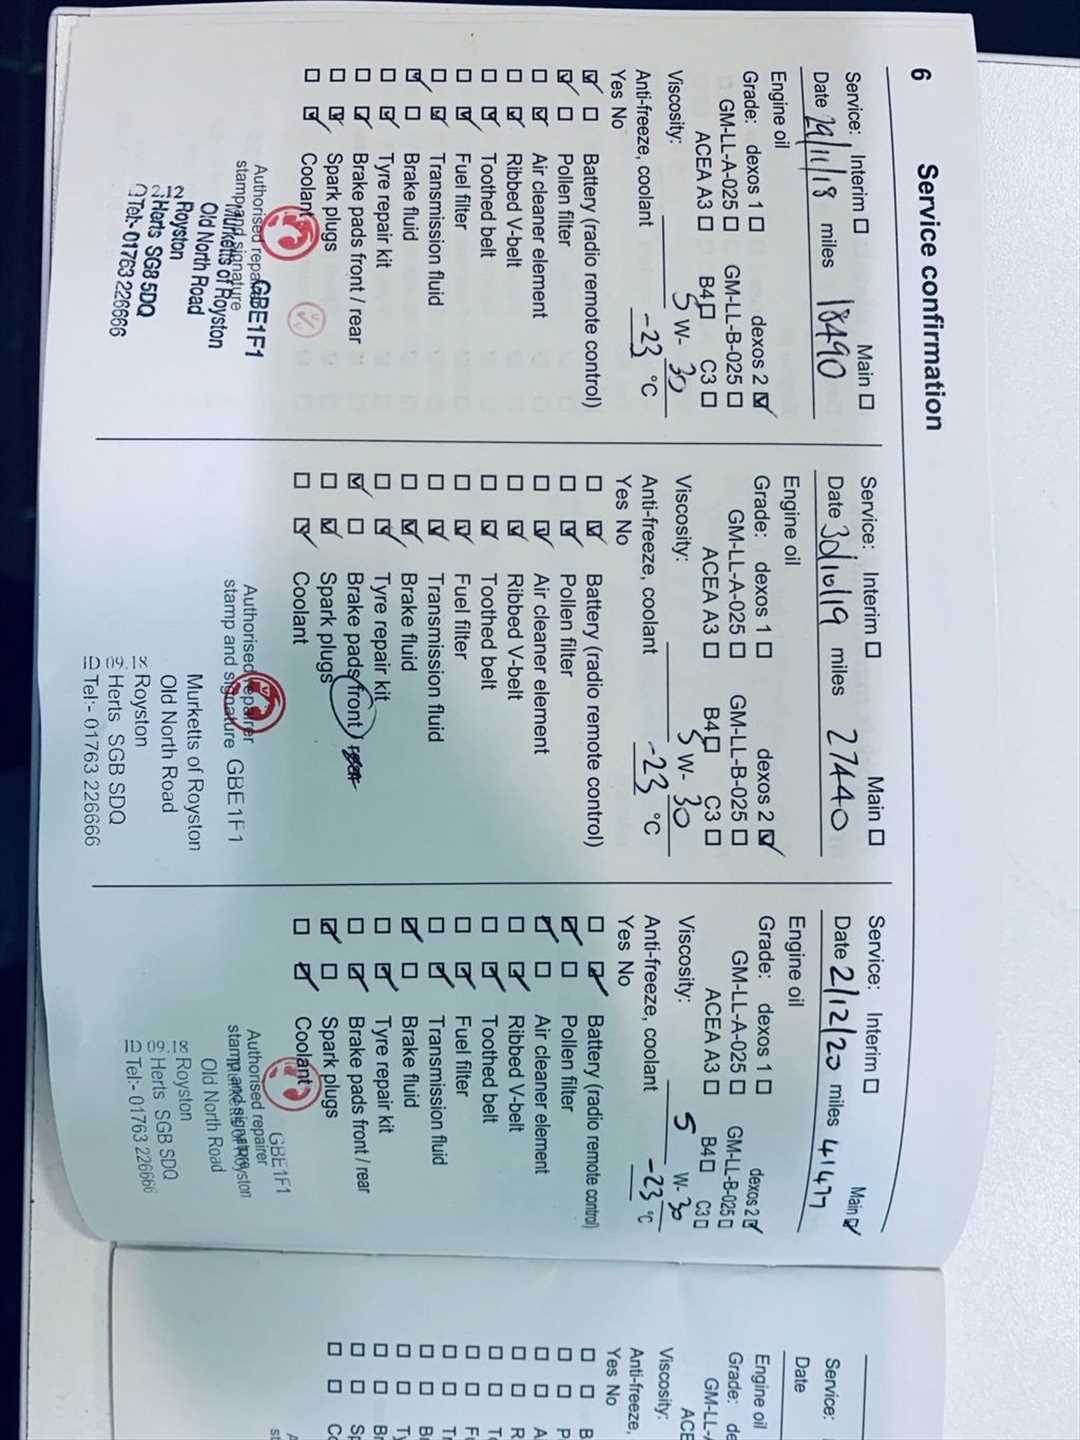 6 Service confirmation
Service: Interim ☐ Main ☐
Date 29/11/18 miles 18490
Engine oil
Grade: dexos 1 ☐ dexos 2 ☑
GM-LL-A-025 ☐ GM-LL-B-025 ☐
ACEA A3 ☐ B4 ☐ C3 ☐
Viscosity: 5 W- 30
Anti-freeze, coolant -23 °C
Yes No
☑ ☐ Battery (radio remote control)
☑ ☐ Pollen filter
☐ ☑ Air cleaner element
☐ ☑ Ribbed V-belt
☐ ☑ Toothed belt
☐ ☑ Fuel filter
☐ ☑ Transmission fluid
☑ ☐ Brake fluid
☐ ☑ Tyre repair kit
☐ ☑ Brake pads front / rear
☐ ☑ Spark plugs
☐ ☑ Coolant
Authorised repairer GBE1F1
stamp and signature
Murketts of Royston
Old North Road
Royston
Herts SG8 5DQ
Tel:- 01763 226666
Service: Interim ☐ Main ☐
Date 30/10/19 miles 27440
Engine oil
Grade: dexos 1 ☐ dexos 2 ☑
GM-LL-A-025 ☐ GM-LL-B-025 ☐
ACEA A3 ☐ B4 ☐ C3 ☐
Viscosity: 5 W- 30
Anti-freeze, coolant -23 °C
Yes No
☐ ☑ Battery (radio remote control)
☐ ☑ Pollen filter
☐ ☑ Air cleaner element
☐ ☑ Ribbed V-belt
☐ ☑ Toothed belt
☐ ☑ Fuel filter
☐ ☑ Transmission fluid
☐ ☑ Brake fluid
☐ ☑ Tyre repair kit
☑ ☐ Brake pads front / rear
☐ ☑ Spark plugs
☐ ☑ Coolant
Authorised repairer
stamp and signature GBE1F1
Murketts of Royston
Old North Road
Royston
ID 09.18 Herts SGB SDQ
Tel:- 01763 226666
Service: Interim ☐ Main ☑
Date 2/12/20 miles 41477
Engine oil
Grade: dexos 1 ☐ dexos 2 ☑
GM-LL-A-025 ☐ GM-LL-B-025 ☐
ACEA A3 ☐ B4 ☐ C3 ☐
Viscosity: 5 W- 30
Anti-freeze, coolant -23 °C
Yes No
☐ ☑ Battery (radio remote control)
☑ ☐ Pollen filter
☑ ☐ Air cleaner element
☐ ☑ Ribbed V-belt
☐ ☑ Toothed belt
☐ ☑ Fuel filter
☐ ☑ Transmission fluid
☑ ☐ Brake fluid
☐ ☑ Tyre repair kit
☐ ☑ Brake pads front / rear
☑ ☐ Spark plugs
☐ ☑ Coolant
Authorised repairer GBE1F1
stamp and signature
Murketts of Royston
Old North Road
Royston
ID 09.18 Herts SGB SDQ
Tel:- 01763 226666
Service:
Date
Engine oil
Grade: de
GM-LL-A
ACE
Viscosity:
Anti-freeze,
Yes No
☐ ☐ B
☐ ☐ P
☐ ☐ A
☐ ☐ R
☐ ☐ To
☐ ☐ Fu
☐ ☐ Tr
☐ ☐ Br
☐ ☐ Ty
☐ ☐ Br
☐ ☐ Sp
☐ ☐ Co
A
st